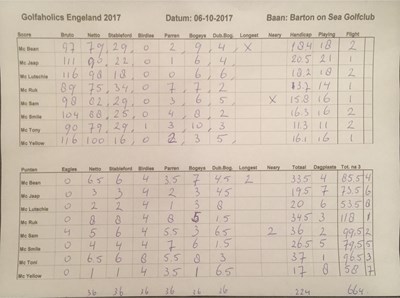 Golfaholics Engeland 2017 Datum: 06-10-2017 Baan: Barton on Sea Golfclub
Score Bruto Netto Stableford Birdies Parren Bogeys Dub.Bog. Longest Neary Handicap Playing Flight
Mc Bean 97 79 29 0 2 9 4 X 18.4 18 2
Mc Jeep 111 90 22 0 1 6 4 20.5 21 1
Mc Lutschie 116 98 18 0 0 6 6 18.2 18 2
Mc Ruk 89 75 34 0 7 7 2 13.7 14 1
Mc Sam 98 82 29 0 3 6 5 X 15.8 16 1
Mc Smile 104 88 25 0 4 8 2 16.3 16 2
Mc Tony 90 79 29 1 3 10 3 11.3 11 2
Mc Yellow 116 100 16 0 2 3 5 16.1 16 1
Punten Eagles Netto Stableford Birdies Parren Bogeys Dub.Bog. Longest Neary Totaal Dagplaats Tot. no.3
Mc Bean 0 6.5 6 4 3.5 7 4.5 2 33.5 4 85.5 4
Mc Jeep 0 3 3 4 2 3 4.5 19.5 7 73.5 6
Mc Lutschie 0 2 2 4 1 3 8 20 6 53.5 8
Mc Ruk 0 8 8 4 8 5 1.5 34.5 3 118 1
Mc Sam 4 5 6 4 5.5 3 6.5 2 36 2 99.5 2
Mc Smile 0 4 4 4 7 6 1.5 26.5 5 79.5 5
Mc Toni 0 6.5 6 8 5.5 8 3 37 1 96.5 3
Mc Yellow 0 1 1 4 3.5 1 6.5 17 8 58 7
36 36 36 36 36 36 224 664